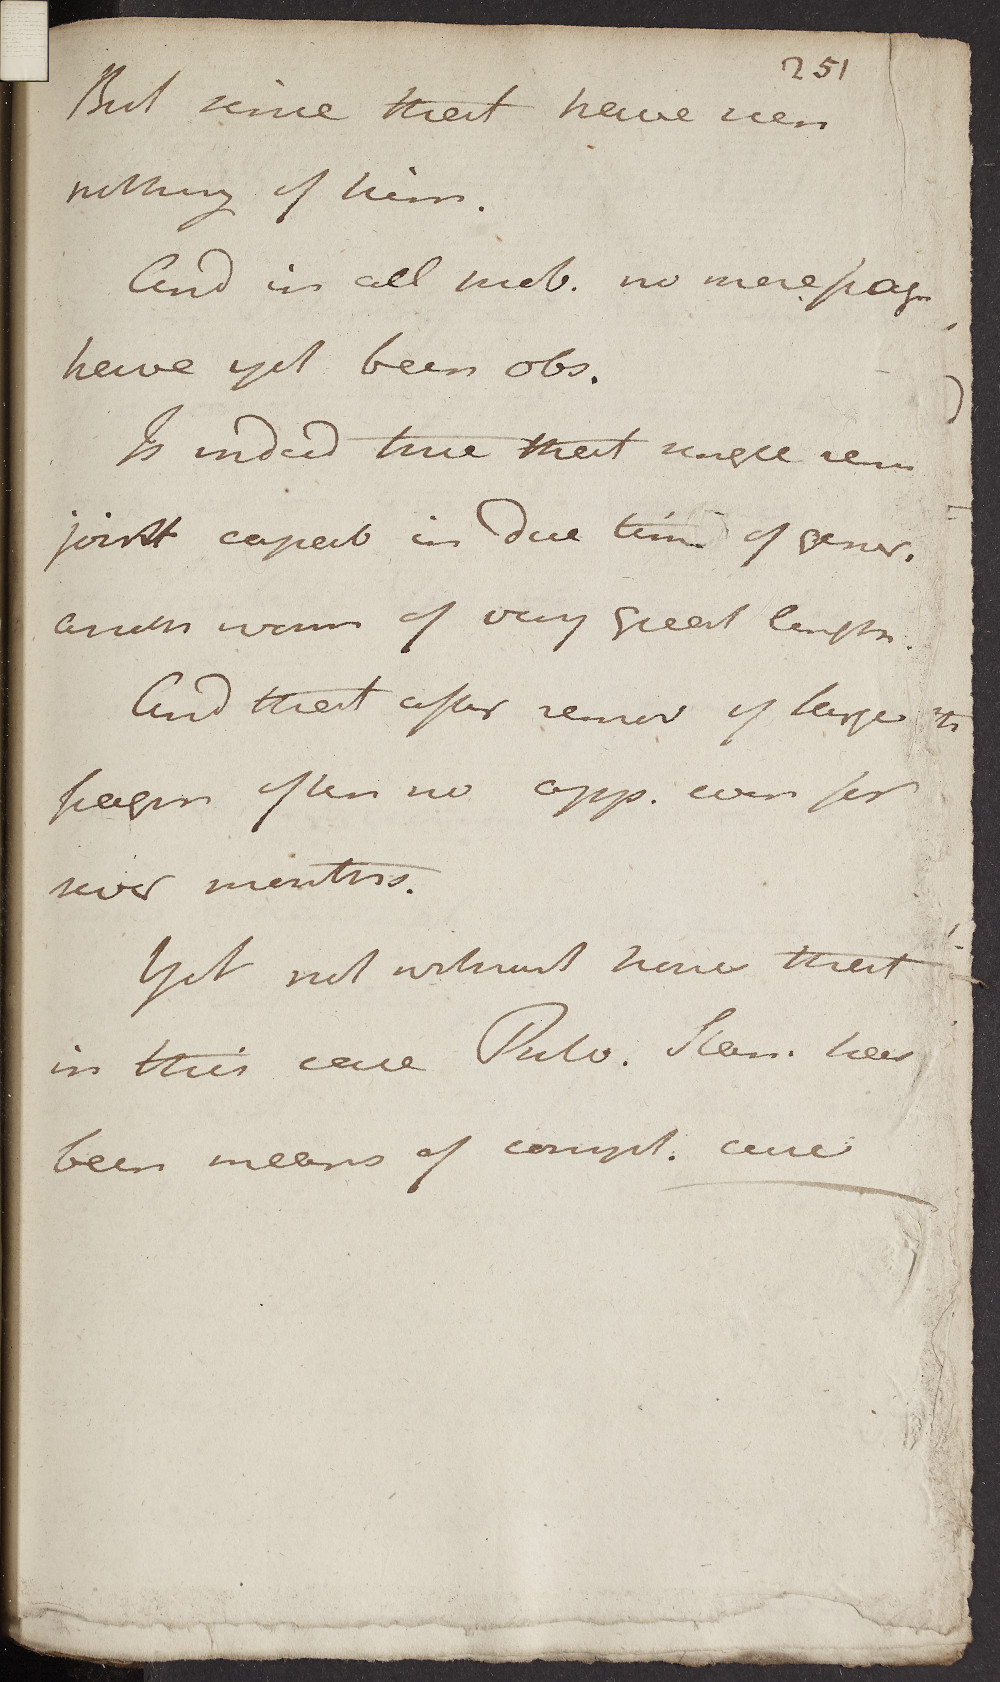 251
But since that have seen
nothing of him.
And in all prob. no more fragn
have yet been obs.
Is indeed true that single rem
joint capab in due time of gener.
anoth worm of very great length.
And that after remov of large
fragm often no app. even for
sever months.
Yet not without hope that
in this case Pulv. Stan. has
been means of compl. cure